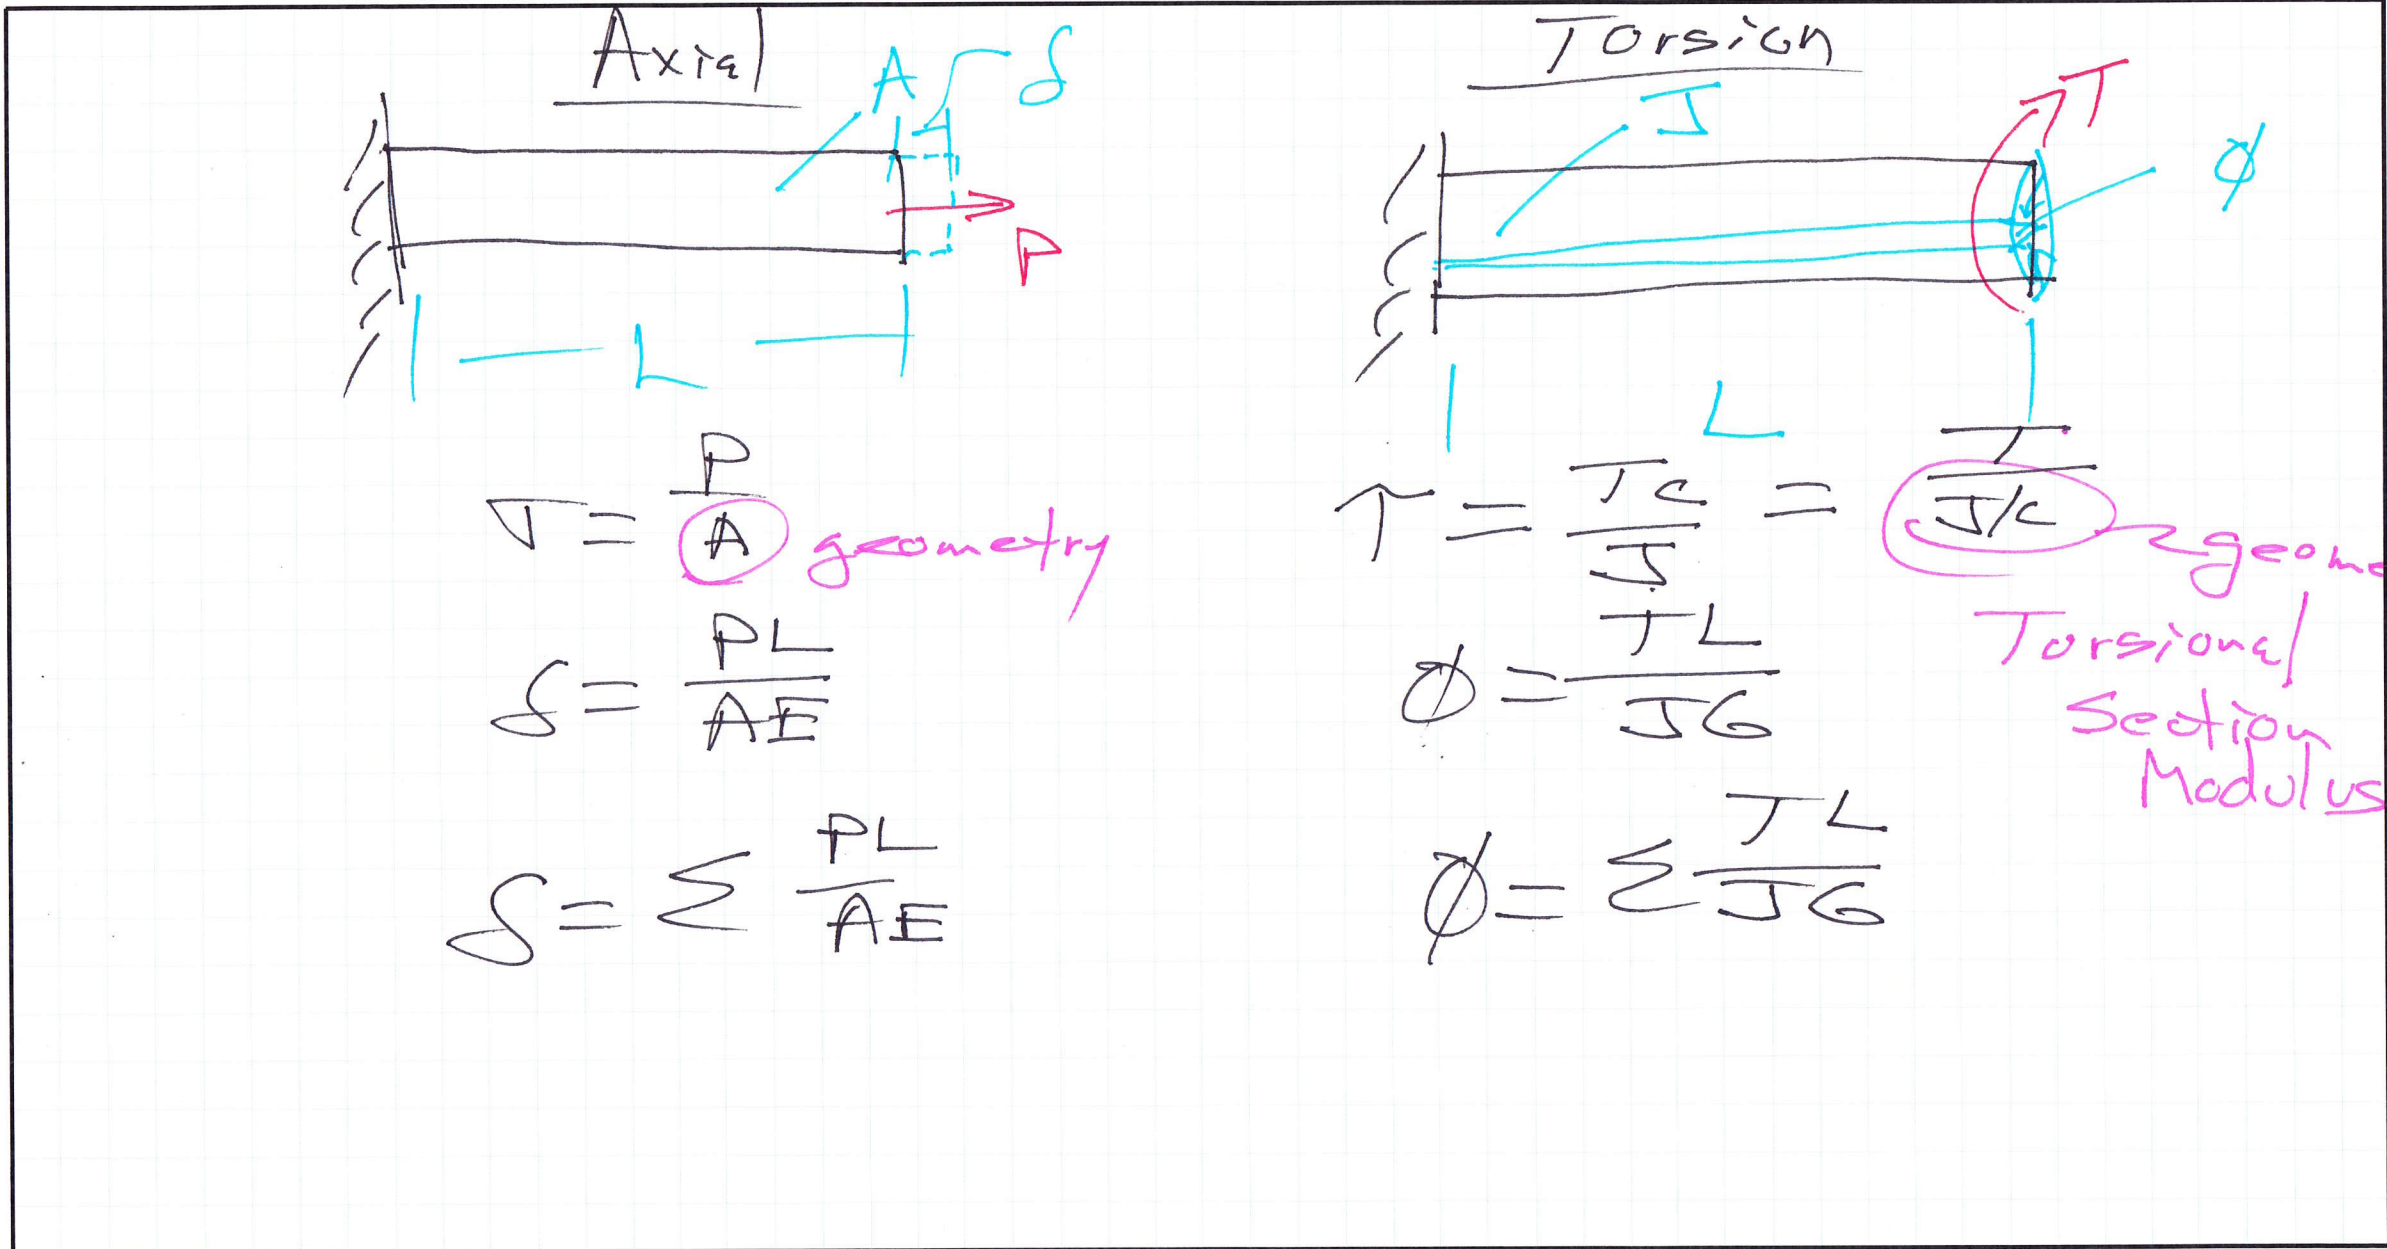 Axial
A
δ
P
L
σ = P/A geometry
δ = PL/AE
δ = Σ PL/AE
Torsion
J
T
φ
L
τ = Tc/J = T/(J/c) geome
Torsional
Section
Modulus
φ = TL/JG
φ = Σ TL/JG